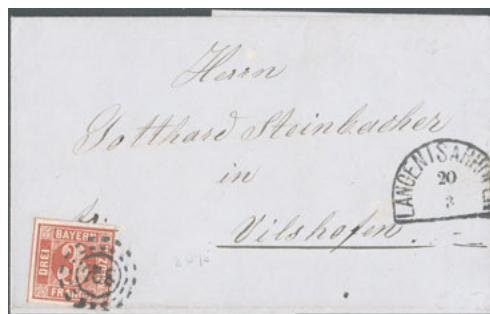 Herrn
Gotthard Steinbacher
in
Vilshofen.
LANGENISARHOFEN
20
3
BAYERN
DREI